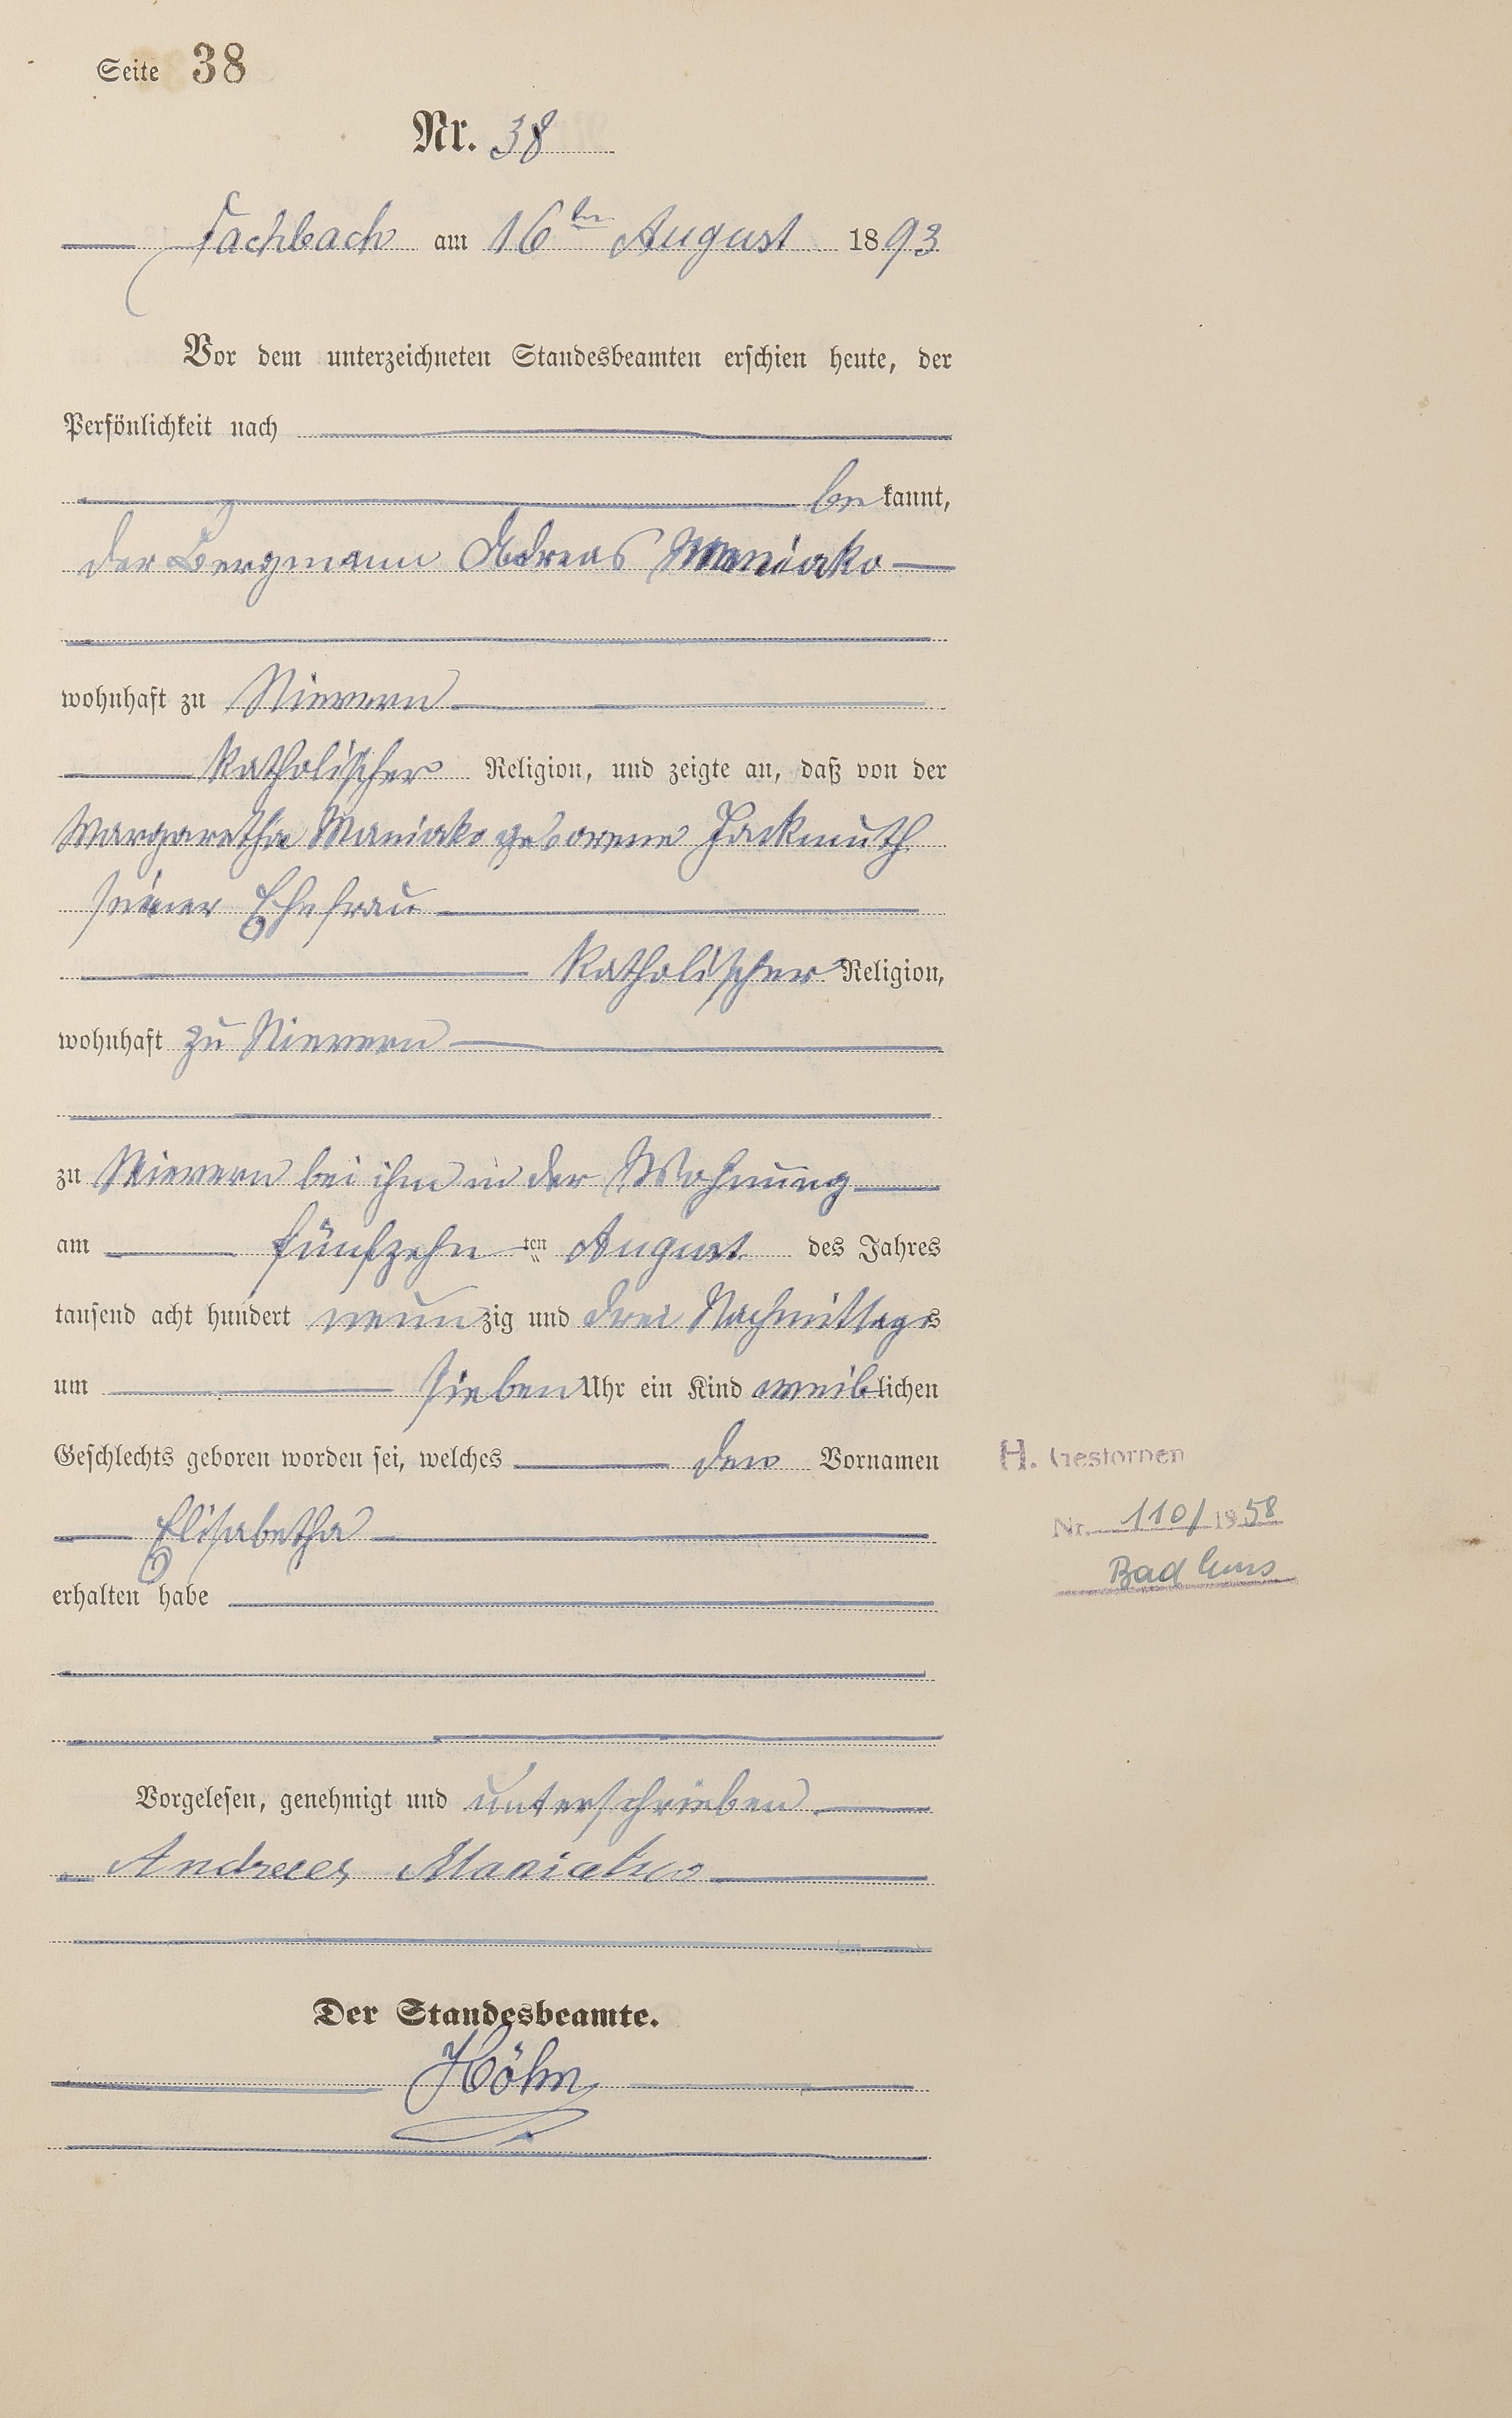 Seite 38
Nr. 38
Fachbach am 16ten August 1893
Vor dem unterzeichneten Standesbeamten erschien heute, der
Persönlichkeit nach
be kannt,
der Bergmann Andreas Maniako
wohnhaft zu Nievern
katholischer Religion, und zeigte an, daß von der
Margaretha Maniako geborene Jackmuth
seiner Ehefrau
katholischer Religion,
wohnhaft zu Nievern
zu Nievern bei ihm in der Wohnung
am fünfzehn ten August des Jahres
tausend acht hundert neunzig und drei Nachmittags
um sieben Uhr ein Kind weiblichen
Geschlechts geboren worden sei, welches den Vornamen
Elisabetha
erhalten habe
Vorgelesen, genehmigt und unterschrieben
Andreas Maniako
Der Standesbeamte.
Höhn
H. Gestorben
Nr. 110/1958
Bad Ems